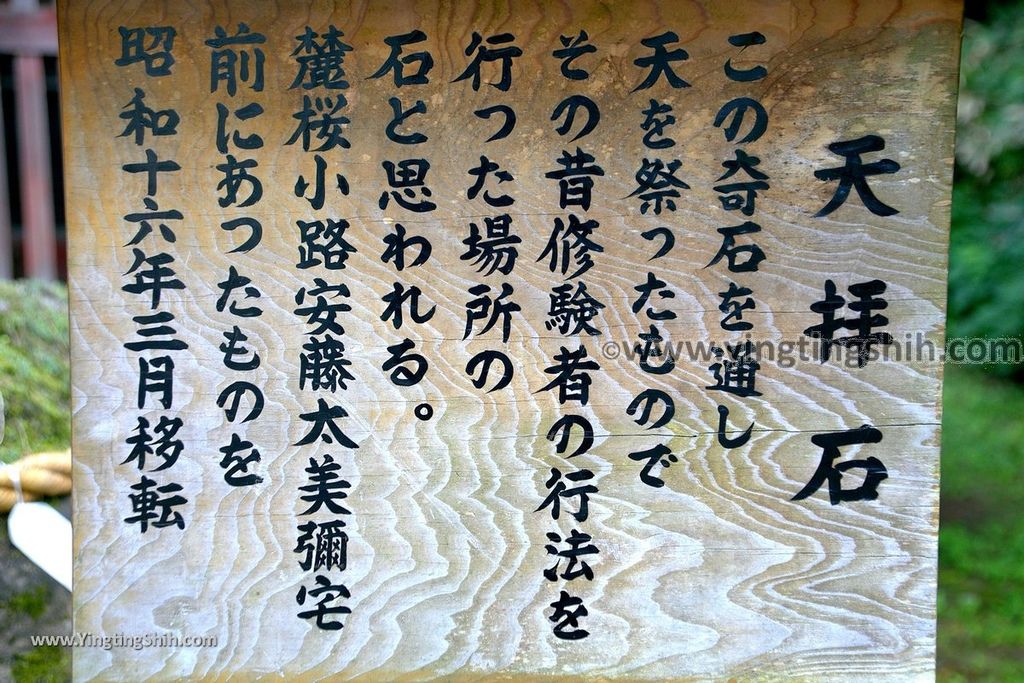 天拝石
この奇石を通し
天を祭ったもので
その昔修験者の行法を
行った場所の
石と思われる。
麓桜小路安藤太美彌宅
前にあったものを
昭和十六年三月移転
©www.YingtingShih.com
www.YingtingShih.com